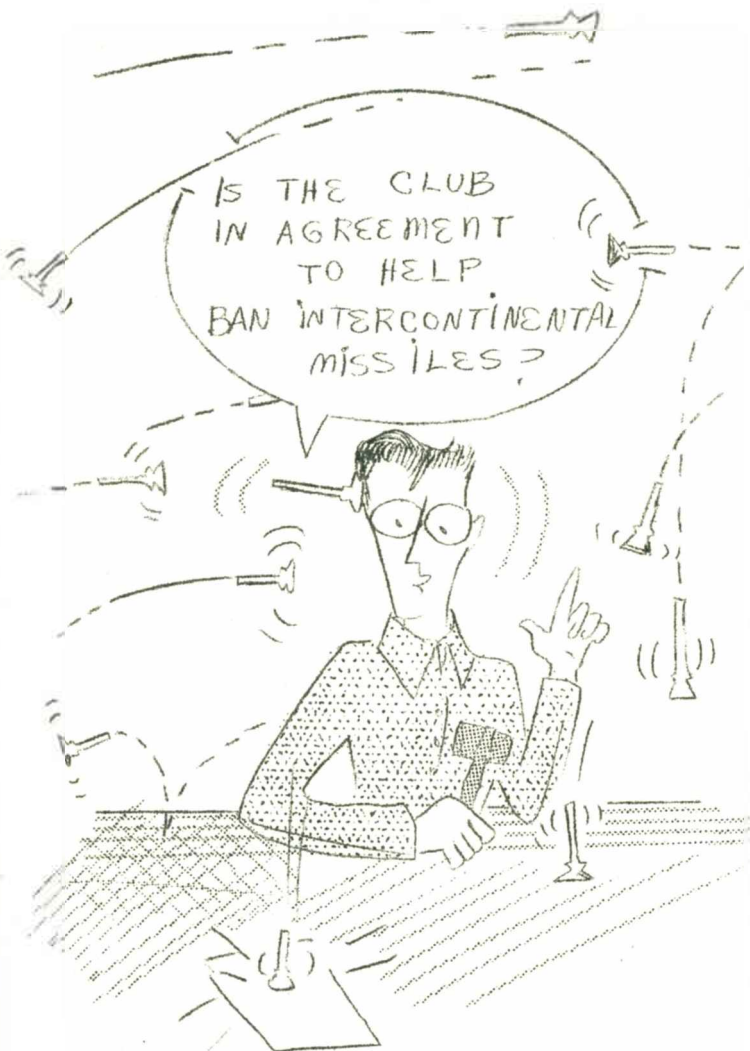 IS THE CLUB
IN AGREEMENT
TO HELP
BAN INTERCONTINENTAL
MISSILES?